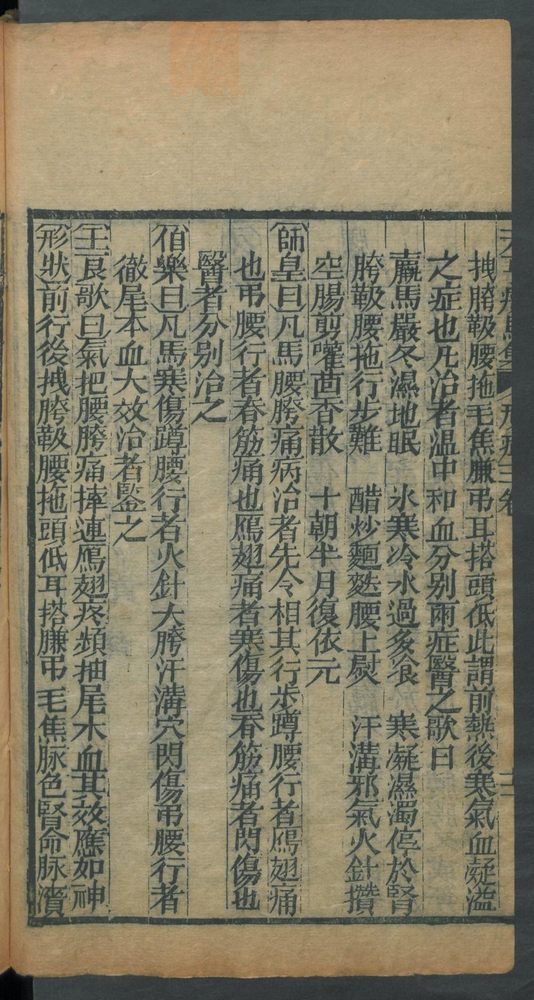 拽胯靸腰拖毛焦膁弔耳搭頭低此謂前熱後寒氣血凝溢
之症也凡治者温中和血分别兩症醫之歌曰
羸馬嚴冬濕地眠　氷寒冷水過多飡　寒凝濕濁停於腎
胯靸腰拖行步難　醋炒麵麩腰上熨　汗溝邪氣火針攢
空腸剪嚾茴香散　十朝半月復依元
師皇曰凡馬腰胯痛病治者先令相其行步蹲腰行者鴈翅痛
也弔腰行者脊筋痛也鴈翅痛者寒傷也脊筋痛者閃傷也
醫者分别治之
伯樂曰凡馬寒傷蹲腰行者火針大胯汗溝穴閃傷弔腰行者
徹尾本血大效治者鑒之
王良歌曰氣把腰胯痛摔連鴈翅疼頻抽尾木血其效應如神
形狀前行後拽胯靸腰拖頭低耳搭膁弔毛焦脉色腎命脉